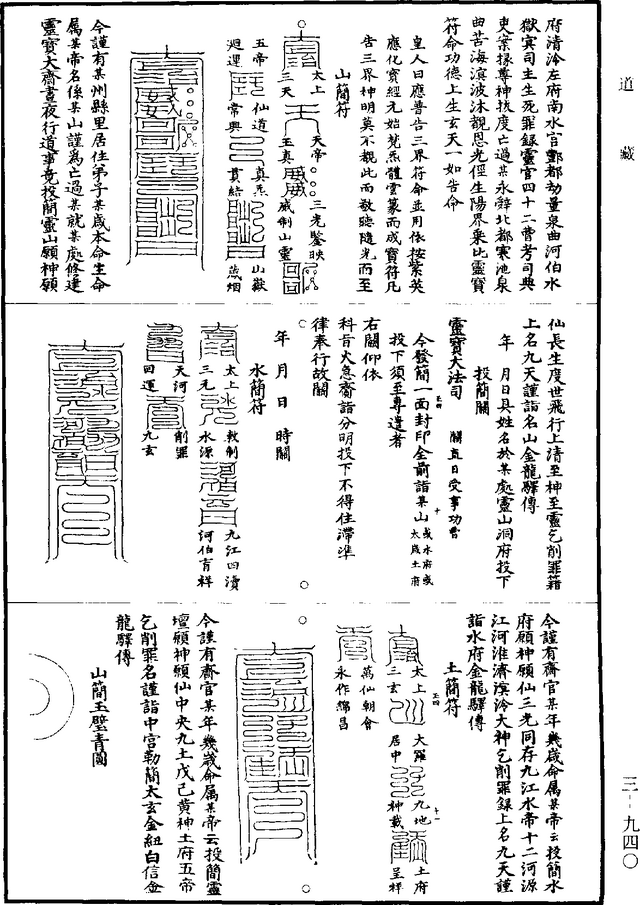 道藏
府清泠左府南水官酆都刼量泉曲河伯水
獄賓司主生死罪錄靈官四十二曹考司典
吏案掾尊神拔度亡過某永辭北都寒池泉
曲苦海溟波沐覩恩光徑生陽界乗比靈寶
符命功德上生玄天一如告命
皇人曰應普告三界符命並用依按紫英
應化寳經元始梵炁體雲篆而成寳符凡
告三界神明莫不覩此而敬聽隨光而至
山簡符
太上
三天
天帝
玉真
三光鑒映
威制山靈
五帝
廻運
仙道
常興
真炁
貫結
山嶽
藏烟
今謹有某州縣里居住弟子某歲本命生命
属某帝名係某山謹爲亡過某就某處修建
靈寳大齋晝夜行道事竟投簡靈山願神願
仙長生度世飛行上清至神至靈乞削罪籍
上名九天謹詣名山金龍驛傳
年月日具姓名於某處靈山洞府投下
投簡關
靈寶大法司 關直日受事功曹
今發簡一面封印全前詣某山或水府或太歲土府
投下須至專遣者
右關仰依
科旨火急齎詣分明投下不得住滯準
律奉行故關
年月日時關
水簡符
太上
三元
敕制
水源
九江四瀆
河伯育祥
天河
四運
削罪
九玄
今謹有齋官某年幾歲命属某帝云投簡水
府願神願仙三光同存九江水帝十二河源
江河淮濟溟泠大神乞削罪録上名九天謹
詣水府金龍驛傳
土簡符
太上
三玄
大羅
居中
九地
神載
土府
呈祥
萬仙朝會
永作綿昌
今謹有齋官某年幾歲命属某帝云投簡靈
壇願神願仙中央九土戊己黃神土府五帝
乞削罪名謹詣中宮勒簡太玄金紐白信金
龍驛傳
山簡玉璧青圓
三--九四〇